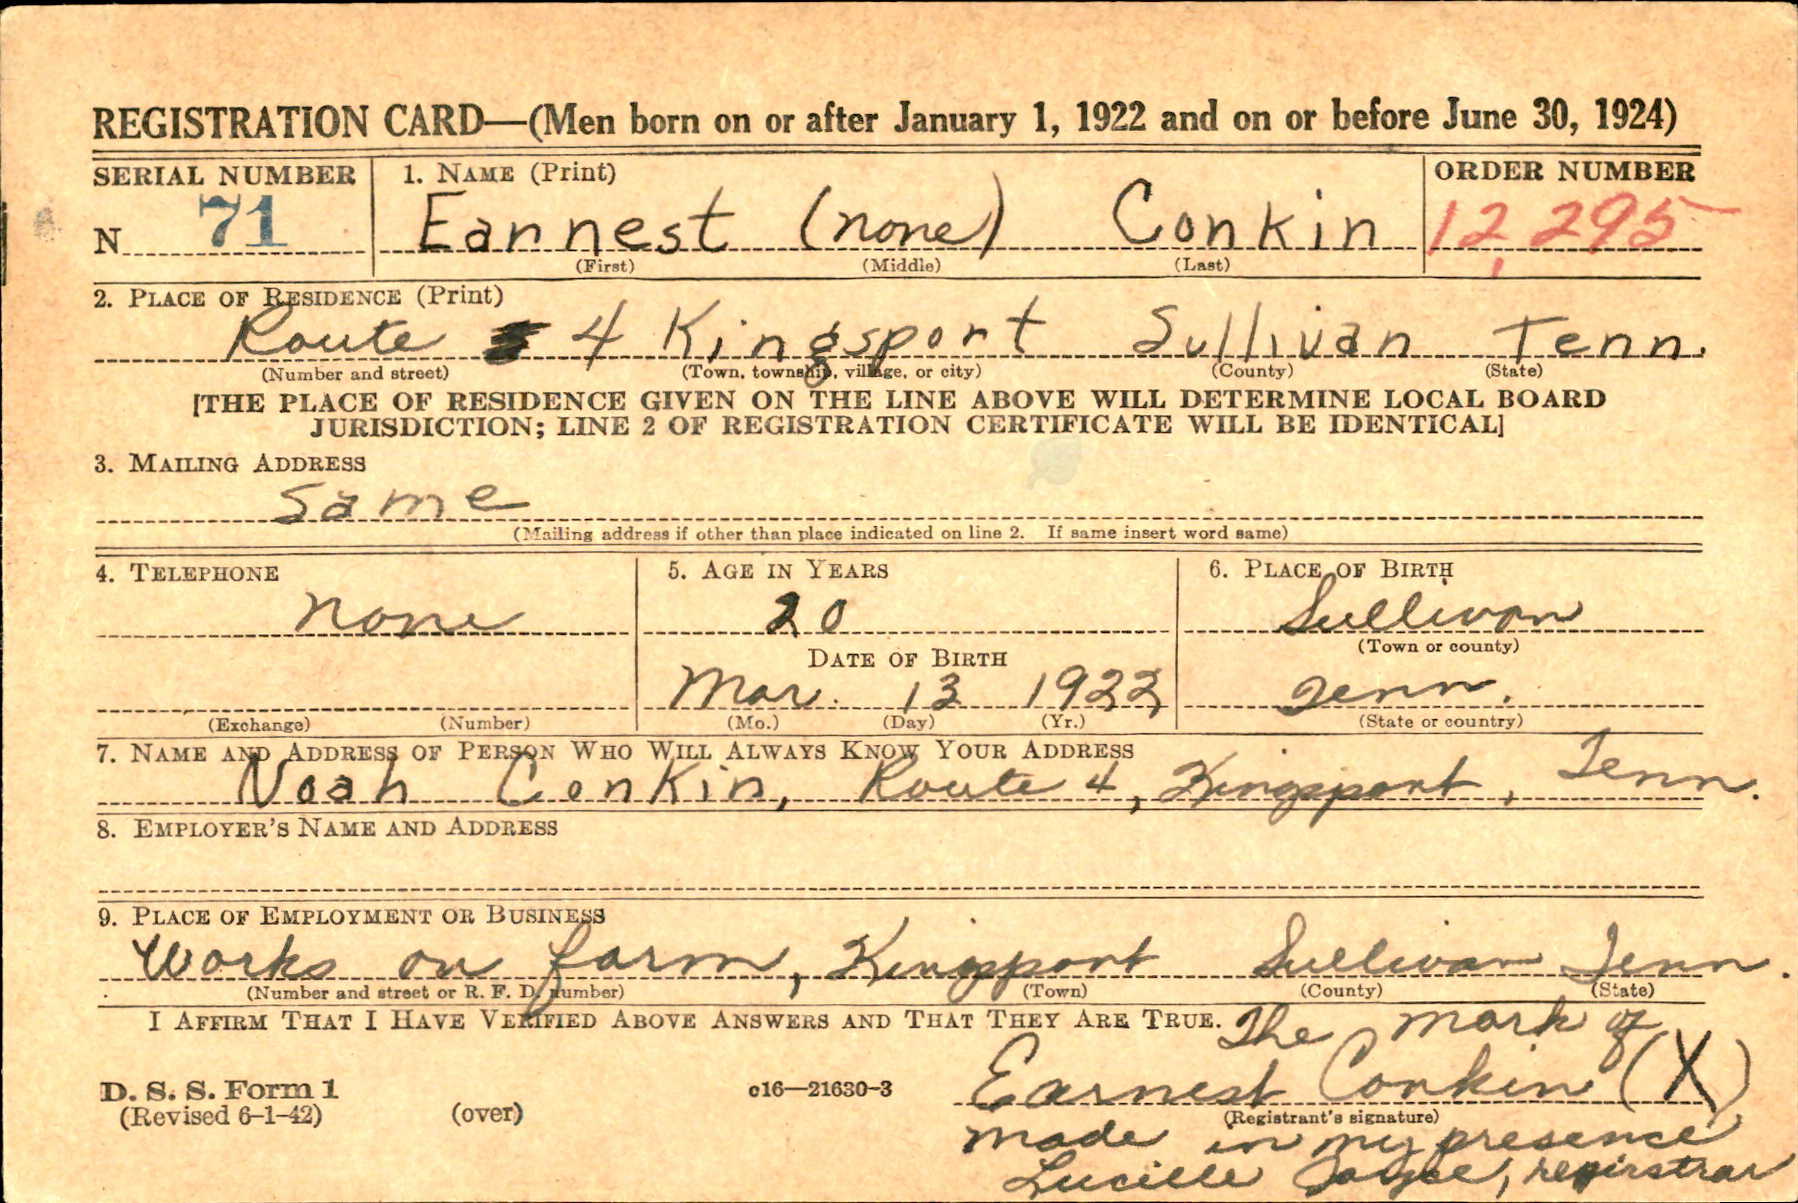 REGISTRATION CARD—(Men born on or after January 1, 1922 and on or before June 30, 1924)
SERIAL NUMBER
1. NAME (Print)
ORDER NUMBER
N 71
Earnest (none) Conkin
12,295
(First) (Middle) (Last)
2. PLACE OF RESIDENCE (Print)
Route 4 Kingsport Sullivan Tenn.
(Number and street) (Town, township, village, or city) (County) (State)
[THE PLACE OF RESIDENCE GIVEN ON THE LINE ABOVE WILL DETERMINE LOCAL BOARD
JURISDICTION; LINE 2 OF REGISTRATION CERTIFICATE WILL BE IDENTICAL]
3. MAILING ADDRESS
Same
(Mailing address if other than place indicated on line 2. If same insert word same)
4. TELEPHONE
none
(Exchange) (Number)
5. AGE IN YEARS
20
DATE OF BIRTH
Mar. 13 1922
(Mo.) (Day) (Yr.)
6. PLACE OF BIRTH
Sullivan
(Town or county)
Tenn.
(State or country)
7. NAME AND ADDRESS OF PERSON WHO WILL ALWAYS KNOW YOUR ADDRESS
Noah Conkin, Route 4, Kingsport, Tenn.
8. EMPLOYER'S NAME AND ADDRESS
9. PLACE OF EMPLOYMENT OR BUSINESS
Works on farm, Kingsport Sullivan Tenn.
(Number and street or R. F. D. number) (Town) (County) (State)
I AFFIRM THAT I HAVE VERIFIED ABOVE ANSWERS AND THAT THEY ARE TRUE.
The mark of
Earnest Conkin (X)
(Registrant's signature)
made in my presence
Lucille regirstrar
D. S. S. Form 1
(Revised 6-1-42) (over)
c16—21630-3